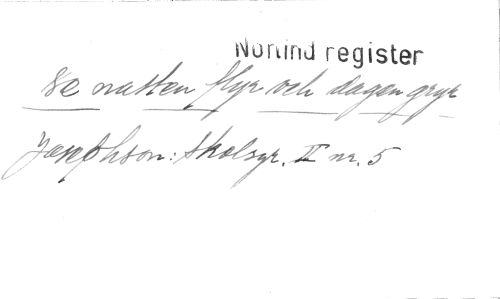 Nonind register
Se natten flyr och dagen gryr
Josephson: Skolsgr. II nr. 5